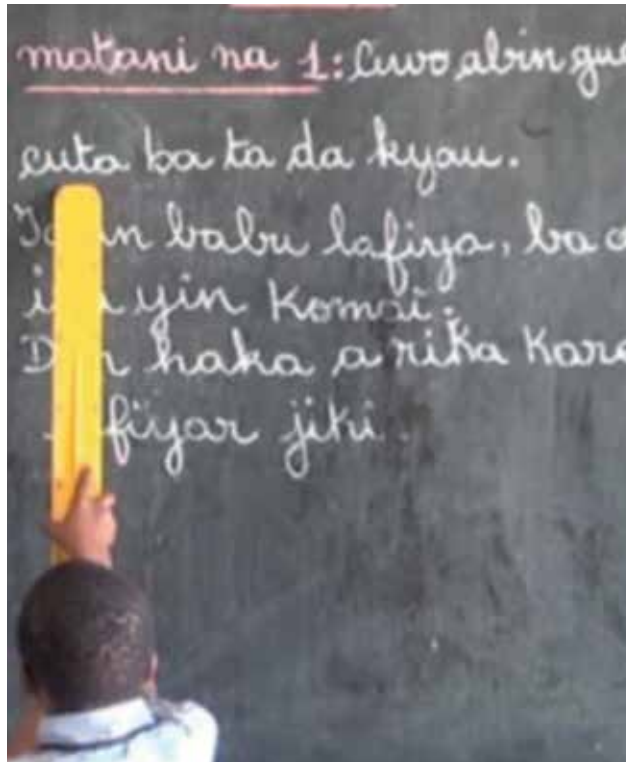 matani na 1: Cuwo abin gu
cuta ba ta da kyau.
in babu lafiya, ba
yin komai.
haka a rika Kar
fiyar jiki.